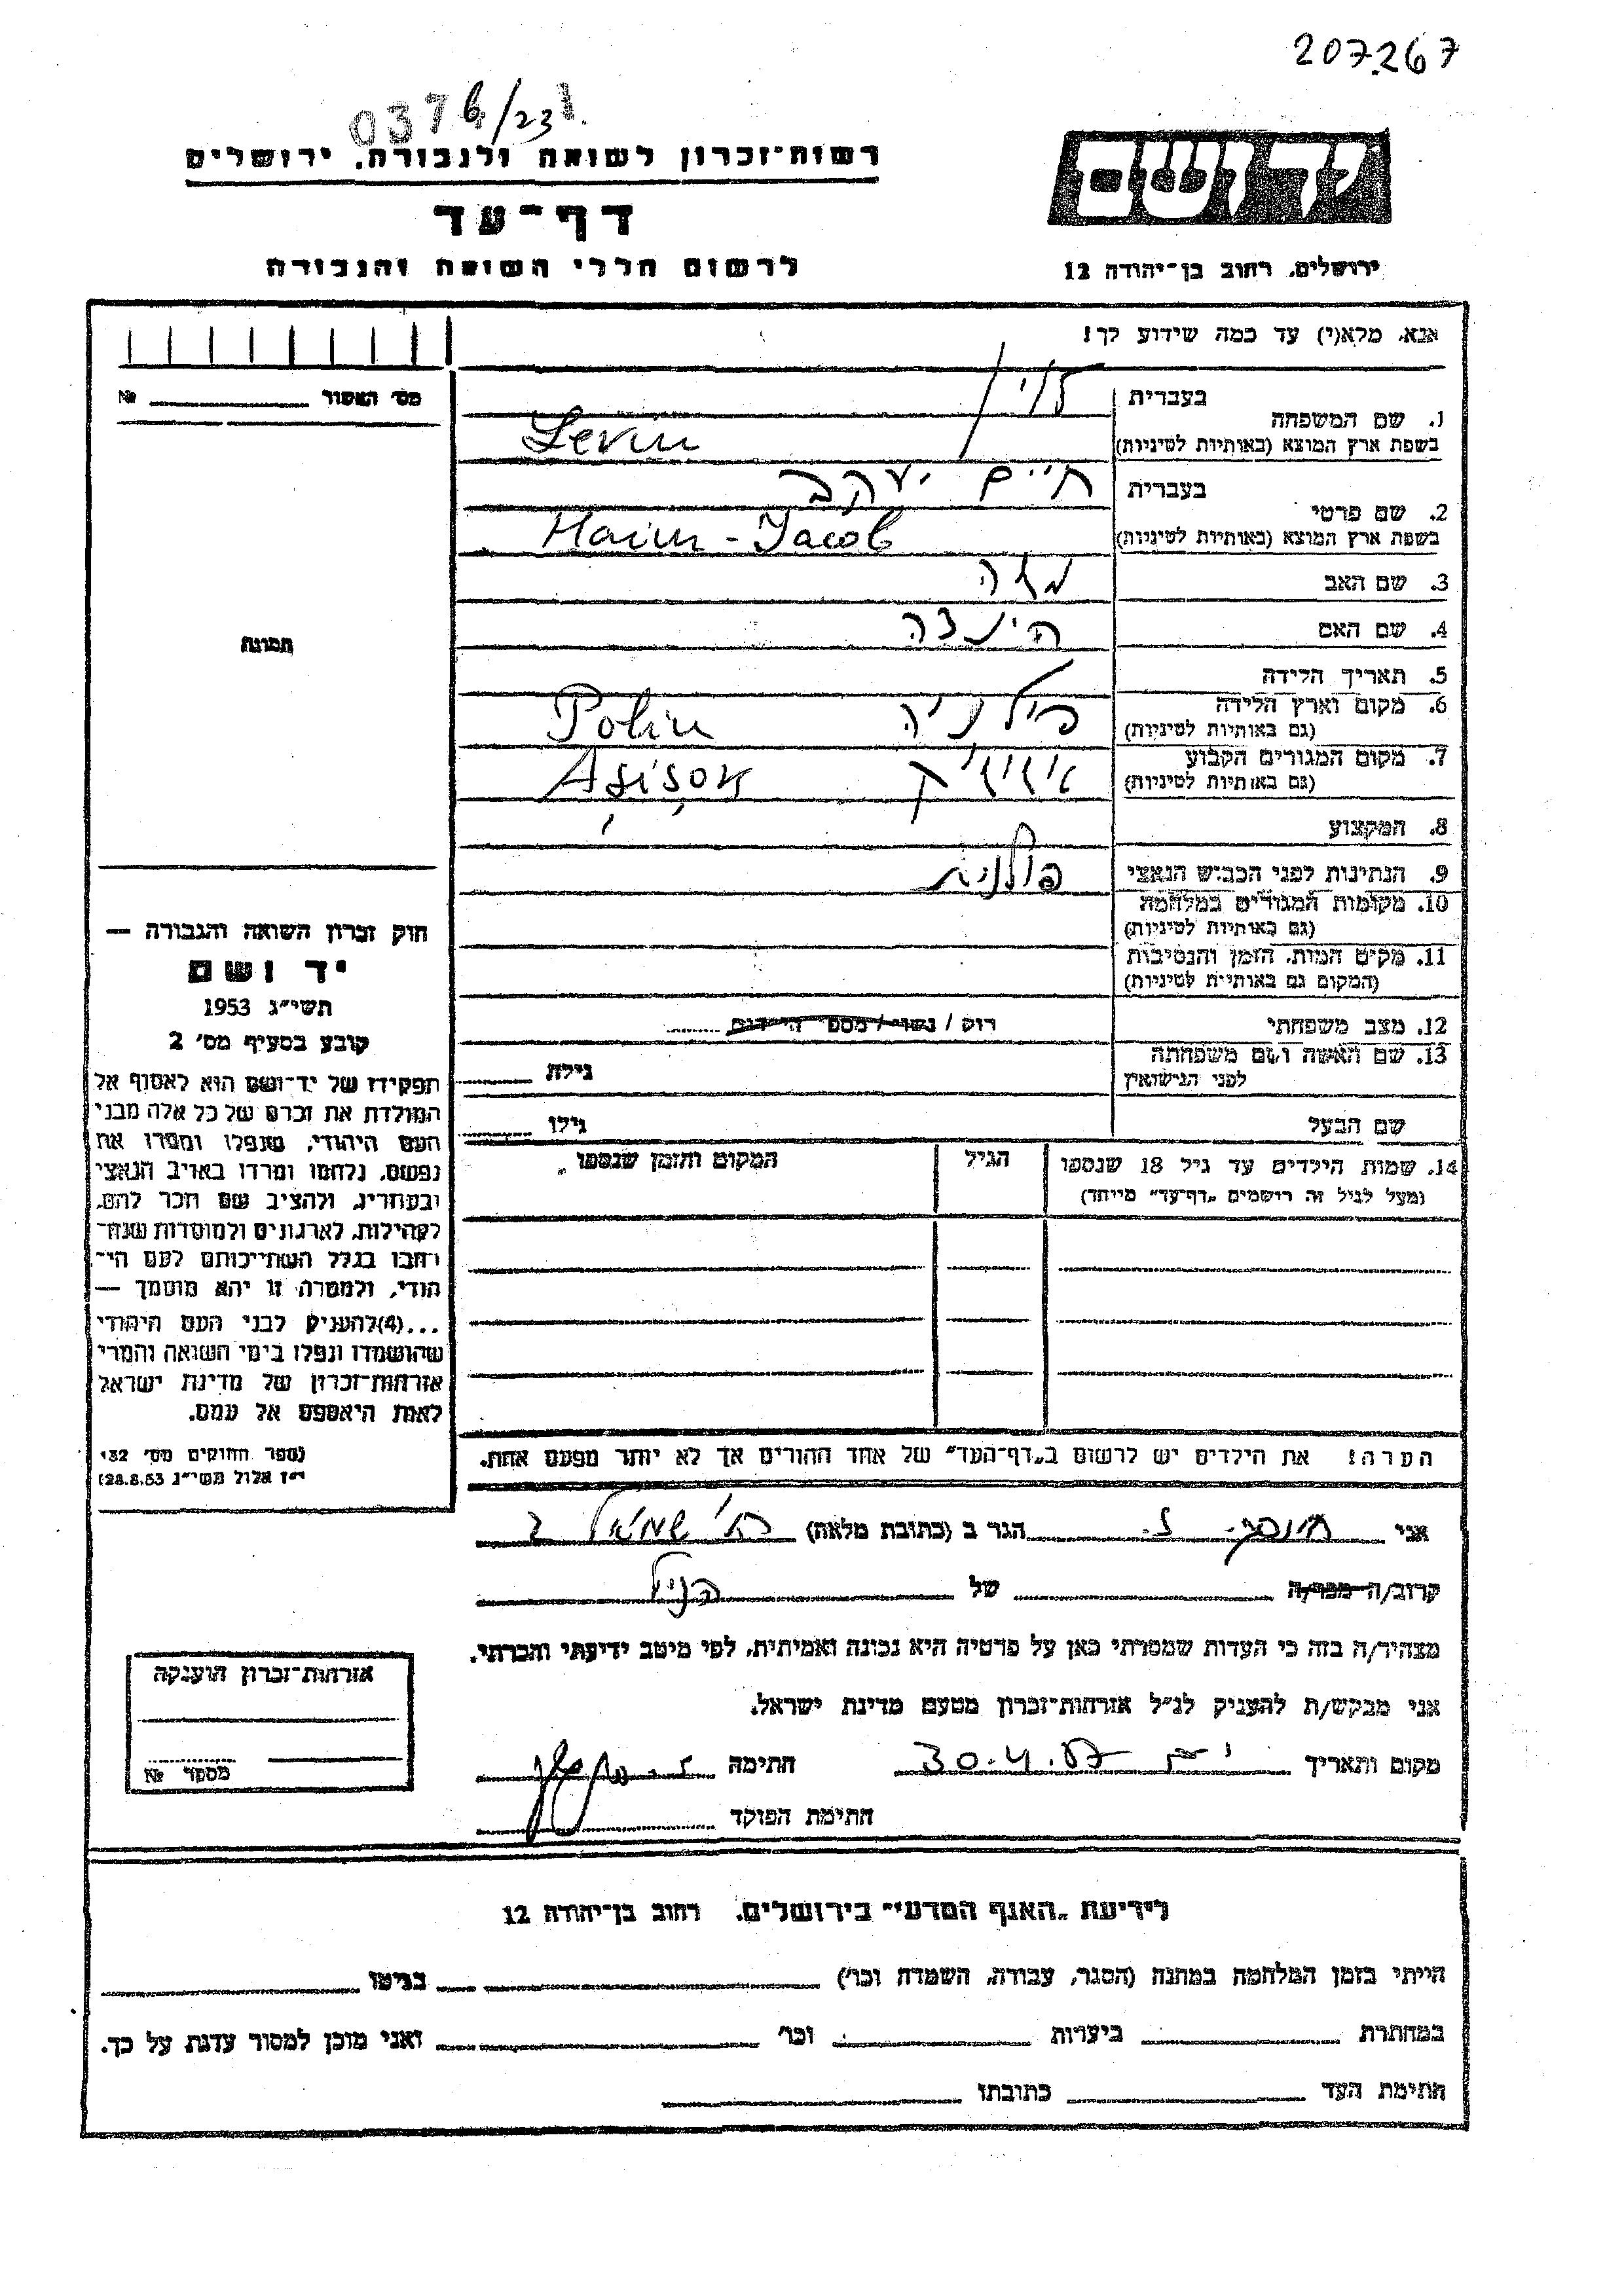 207.267
0376/231.
יד ושם
רשות־זכרון לשואה ולגבורה, ירושלים
דף־עד
לרשום חללי השואה והגבורה
ירושלים, רחוב בן־יהודה 12
אנא, מלא(י) עד כמה שידוע לך!
מס' האסור № ____
1. שם המשפחה
בעברית לוין
בשפת ארץ המוצא (באותיות לטיניות) Levin
2. שם פרטי
בעברית חיים יעקב
בשפת ארץ המוצא (באותיות לטיניות) Haim-Jacob
3. שם האב משה
4. שם האם
5. תאריך הלידה
6. מקום וארץ הלידה
(גם באותיות לטיניות) פולניה Polin
7. מקום המגורים הקבוע
(גם באותיות לטיניות)
8. המקצוע
9. הנתינות לפני הכבוש הנאצי פולנית
10. מקומות המגורים במלחמה
(גם באותיות לטיניות)
11. מקום המות, הזמן והנסיבות
(המקום גם באותיות לטיניות)
12. מצב משפחתי רוק / נשוי / מספר הילדים ........
13. שם האשה ושם משפחתה
לפני הנישואין גילה ........
שם הבעל גילו ........
14. שמות הילדים עד גיל 18 שנספו
(מעל לגיל זה רושמים „דף־עד" מיוחד)
הגיל
המקום והזמן שנספו
הערה! את הילדים יש לרשום ב„דף־העד" של אחד ההורים אך לא יותר מפעם אחת.
תמונה
חוק זכרון השואה והגבורה —
יד ושם
תשי"ג 1953
קובע בסעיף מס' 2
תפקידו של יד־ושם הוא לאסוף אל
המולדת את זכרם של כל אלה מבני
העם היהודי, שנפלו ומסרו את
נפשם, נלחמו ומרדו באויב הנאצי
ובעוזריו, ולהציב שם וזכר להם,
לקהילות, לארגונים ולמוסדות שנח־
רבו בגלל השתייכותם לעם הי־
הודי, ולמטרה זו יהא מוסמך —
...(4) להעניק לבני העם היהודי
שהושמדו ונפלו בימי השואה והמרי
אזרחות־זכרון של מדינת ישראל
לאות היאספם אל עמם.
(ספר החוקים מס' 132
י"ז אלול תשי"ג 28.8.53)
אני הגר ב (כתובת מלאה)
קרוב/ה מכר/ה של הנ"ל
מצהיר/ה בזה כי העדות שמסרתי כאן על פרטיה היא נכונה ואמיתית, לפי מיטב ידיעתי והכרתי.
אני מבקש/ת להעניק לנ"ל אזרחות־זכרון מטעם מדינת ישראל.
מקום ותאריך 30.4.57 חתימה
חתימת הפוקד
אזרחות־זכרון הוענקה
מספר №
לידיעת „האגף המדעי" בירושלים, רחוב בן־יהודה 12
הייתי בזמן המלחמה במחנה (הסגר, עבודה, השמדה וכו') ____ בגיטו ____
במחתרת ____ ביערות ____ וכו' ____ ואני מוכן למסור עדות על כך.
חתימת העד ____ כתובתו ____